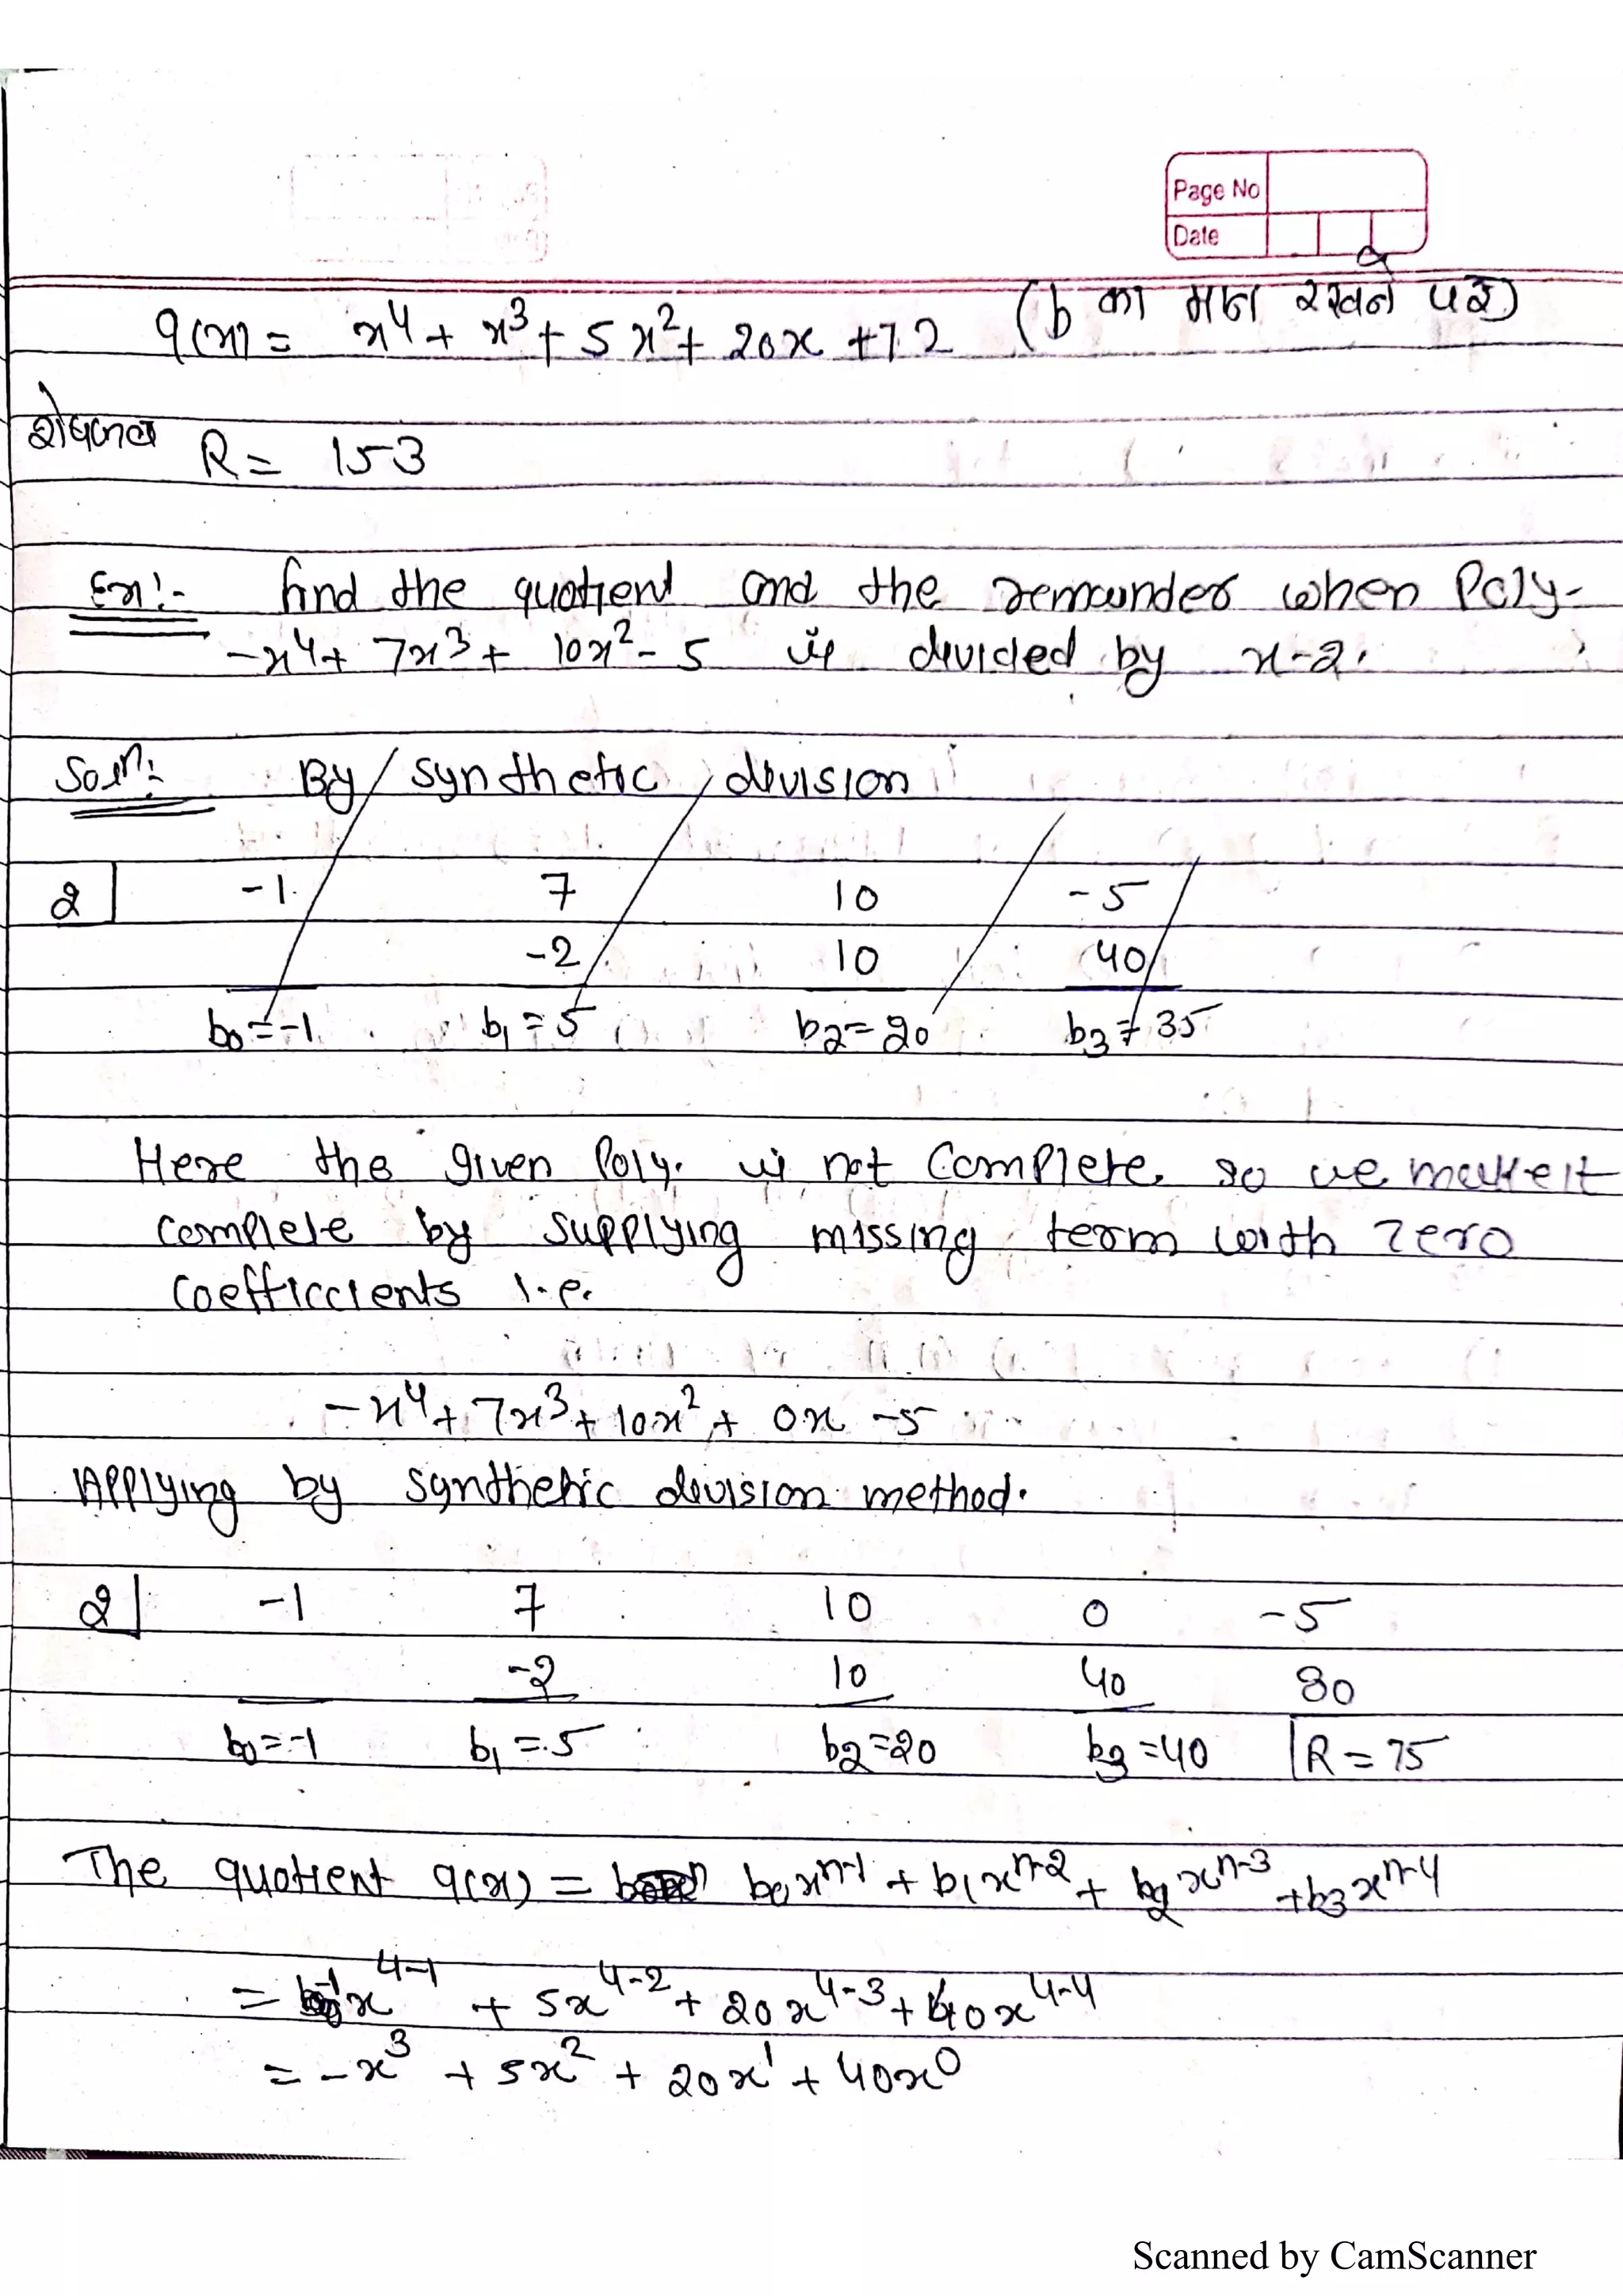 Page No
Date
q(x) = x⁴ + x³ + 5x² + 20x + 72 (b का मान रखने पर)
शेषफल R = 153
Ex:- find the quotient and the remainder when Poly-
-x⁴ + 7x³ + 10x² - 5 is divided by x-2.
Solⁿ: By synthetic division
2 -1 7 10 -5
-2 10 40
b₀=-1 b₁=5 b₂=20 b₃=35
Here the given Poly. is not Complete. so we make it
complete by supplying missing term with zero
coefficcients i.e.
-x⁴ + 7x³ + 10x² + 0x - 5
Applying by synthetic division method.
2 -1 7 10 0 -5
-2 10 40 80
b₀=-1 b₁=5 b₂=20 b₃=40 R=75
The quotient q(x) = b₀xⁿ⁻¹ + b₁xⁿ⁻² + b₂xⁿ⁻³ + b₃xⁿ⁻⁴
= -1x⁴⁻¹ + 5x⁴⁻² + 20x⁴⁻³ + 40x⁴⁻⁴
= -x³ + 5x² + 20x¹ + 40x⁰
Scanned by CamScanner